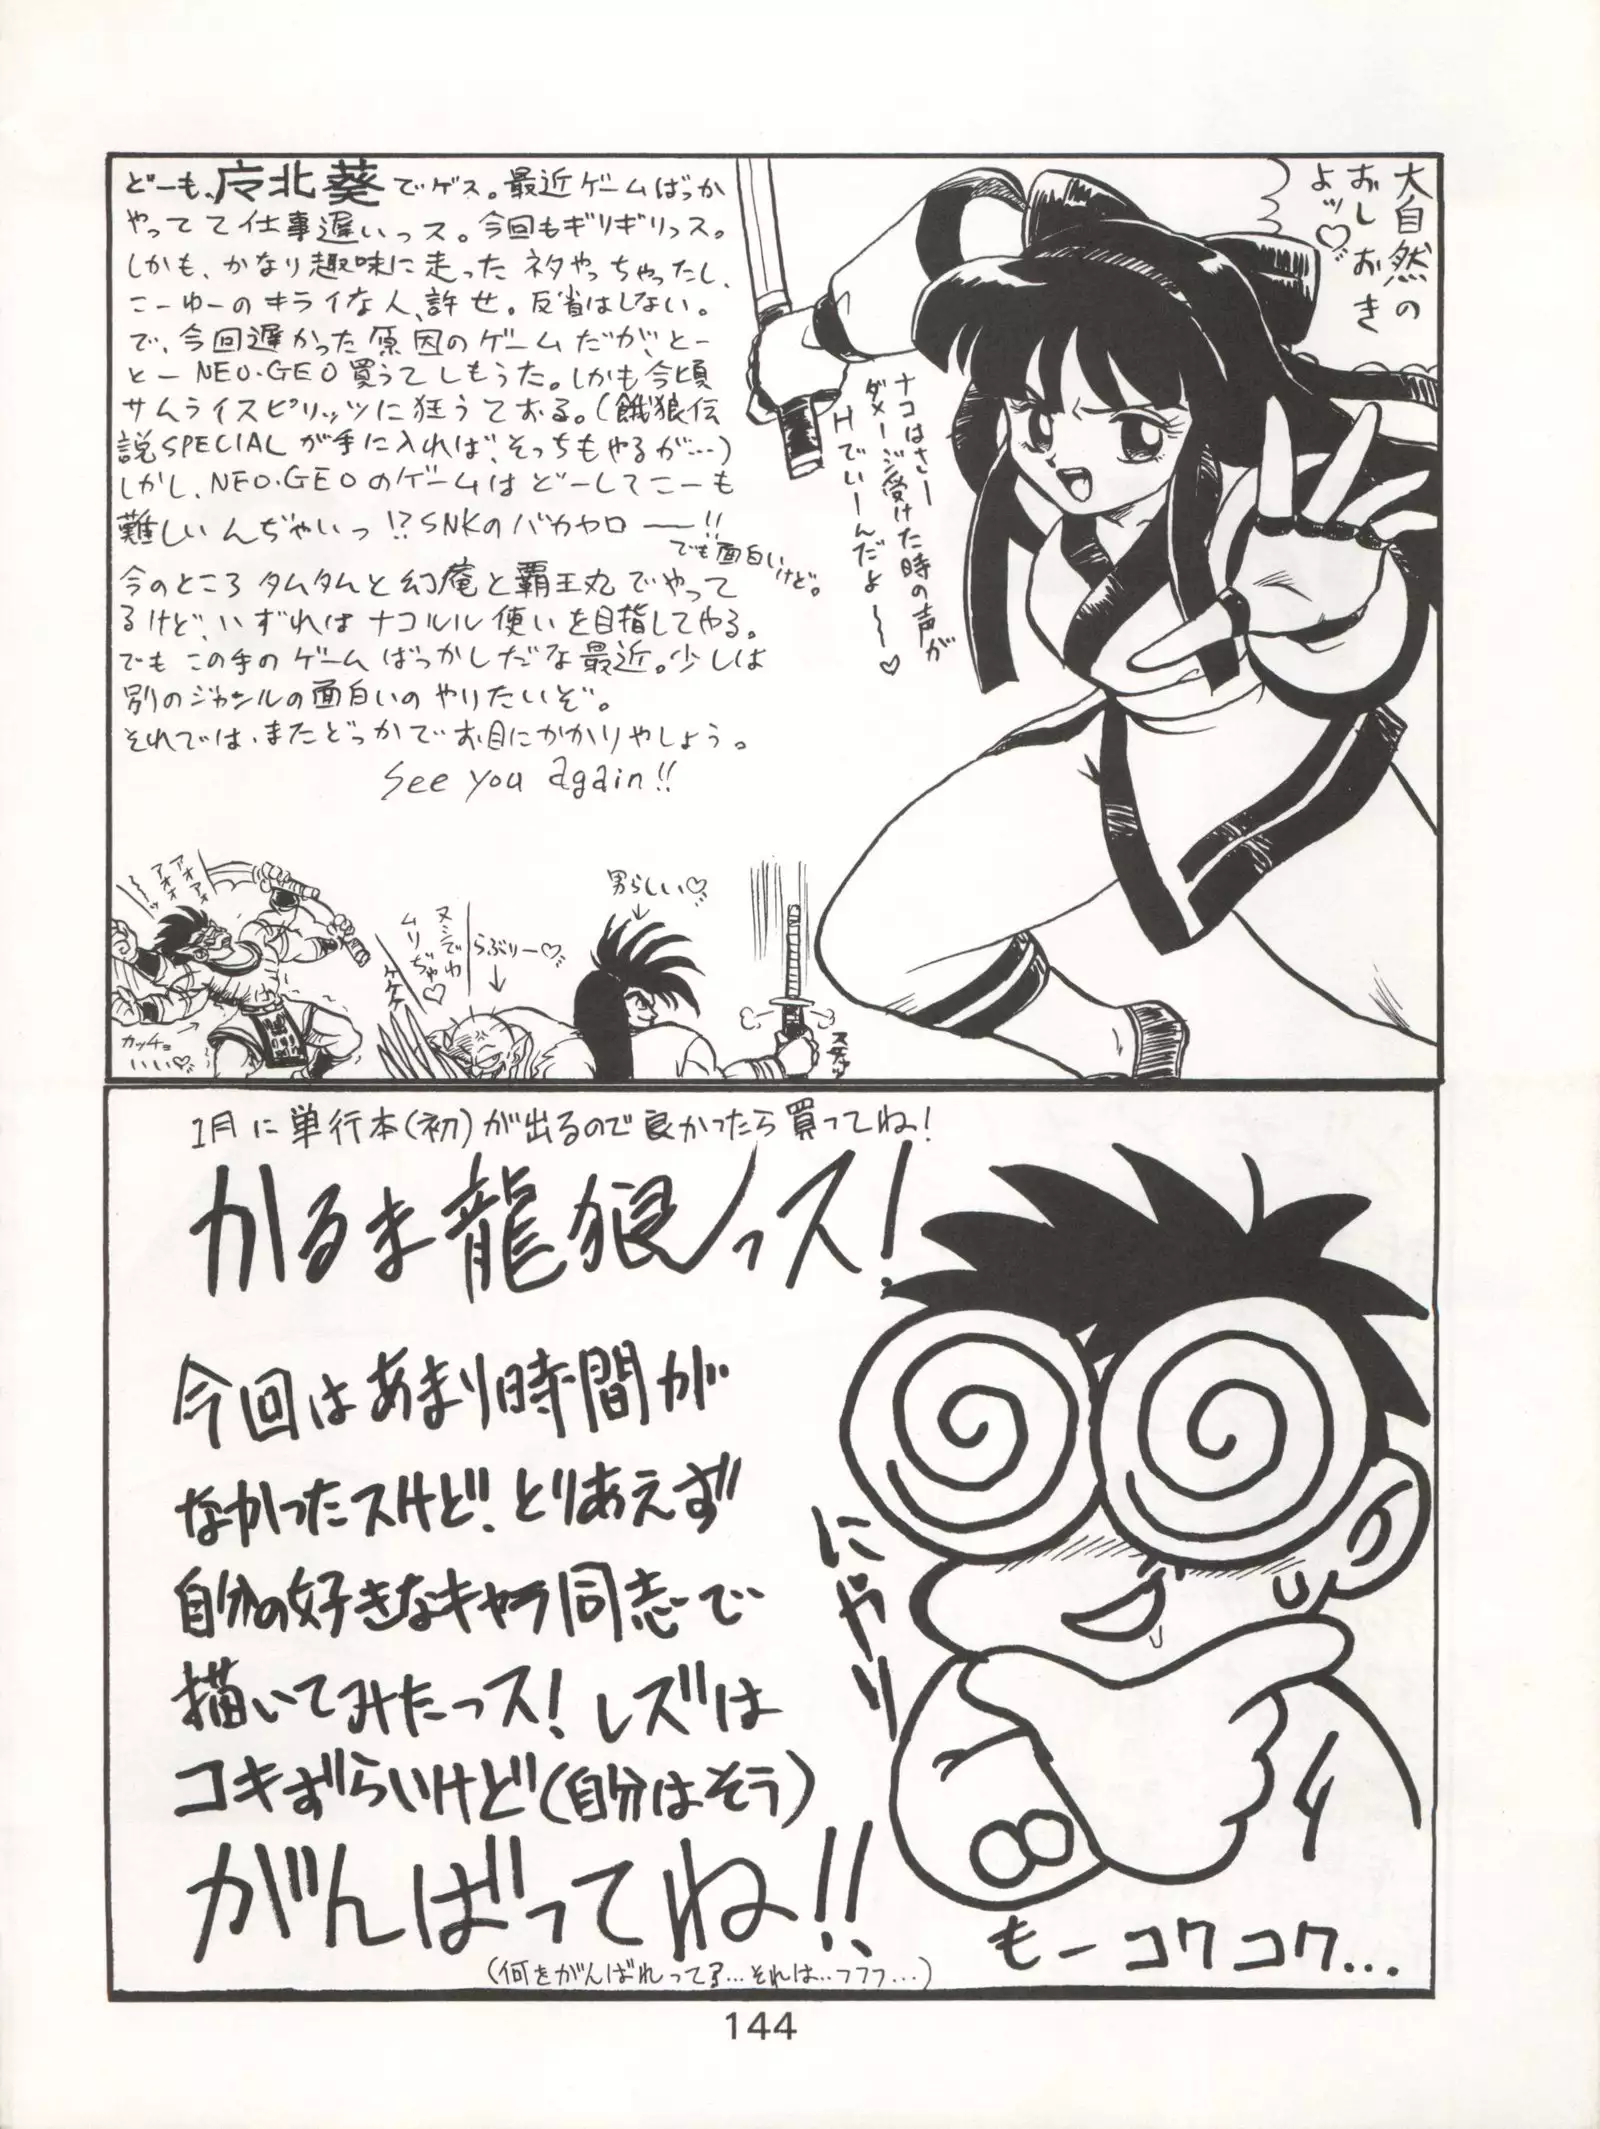 どーも、広北葵でゲス。最近ゲームばっか
やってて仕事遅いっス。今回もギリギリっス。
しかも、かなり趣味に走ったネタやっちゃったし、
こーゆーのキライな人、許せ。反省はしない。
で、今回遅かった原因のゲームだが、とー
とーNEO・GEO買うてしもうた。しかも今頃
サムライスピリッツに狂うておる。(餓狼伝
説SPECIALが手に入れば、そっちもやるが…)
しかし、NEO・GEOのゲームはどーしてこーも
難しいんぢゃいっ!?SNKのバカヤロ――!!
でも面白いけど。
今のところタムタムと幻庵と覇王丸でやって
るけど、いずれはナコルル使いを目指してやる。
でもこの手のゲームばっかしだな最近。少しは
別のジャンルの面白いのやりたいぞ。
それでは、またどっかでお目にかかりやしょう。
See you again!!
大自然の
おしおき
よッ♡
ナコはさー
ダメージ受けた時の声が
Hでいーんだよ〜〜♡
アオォ
アオォ
アオォーッ
カッチョ
いい♡
ヌシでわ
ムリぢゃ♡
ケケケ
らぶりー♡
男らしい♡
1月に単行本(初)が出るので良かったら買ってね!
かるま龍狼っス!
今回はあまり時間が
なかったスけど、とりあえず
自分の好きなキャラ同志で
描いてみたっス!レズは
コキずらいけど(自分はそう)
がんばってね!!
(何をがんばれって?…それは…フフフ…)
にやり
もーコクコク…
144